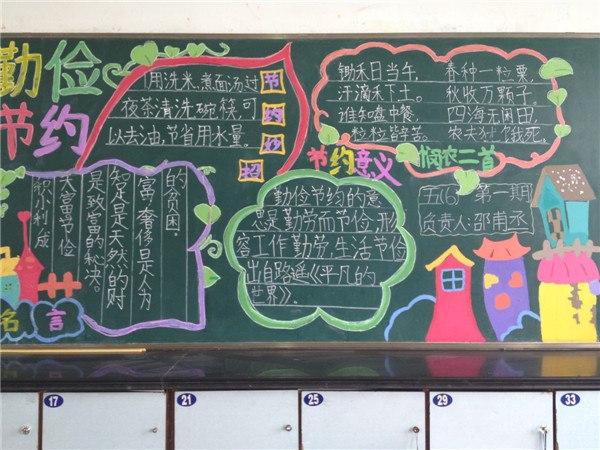 勤俭
节约
用洗米,煮面汤过
夜茶清洗碗筷,可
以去油,节省用水量。
节
约
妙
招
锄禾日当午,
汗滴禾下土。
谁知盘中餐,
粒粒皆辛苦。
春种一粒粟,
秋收万颗子。
四海无闲田,
农夫犹饿死。
节约意义
悯农二首
积小利成
大富节俭
是致富的秘决。
知足是天然的财
富,奢侈是人为
的贫困。
名言
勤俭节约的意
思是勤劳而节俭,形
容工作勤劳,生活节俭
出自路遥《平凡的
世界》。
五(6) 第一期
负责人:邵甫丞
17
21
25
29
33